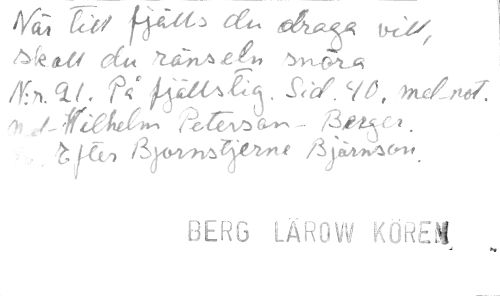 När till fjälls du draga vill,
skall du ränseln snöra
N:r. 21. På fjällstig. Sid. 40, med not.
md - Wilhelm Peterson - Berger.
Efter Bjornstjerne Bjärnson.
BERG LÄROW KÖREN